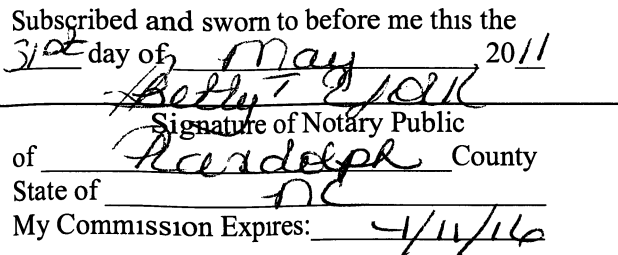 Subscribed and sworn to before me this the
31st day of May, 2011
Betty T
Signature of Notary Public
of Randolph County
State of NC
My Commission Expires: 4/11/16